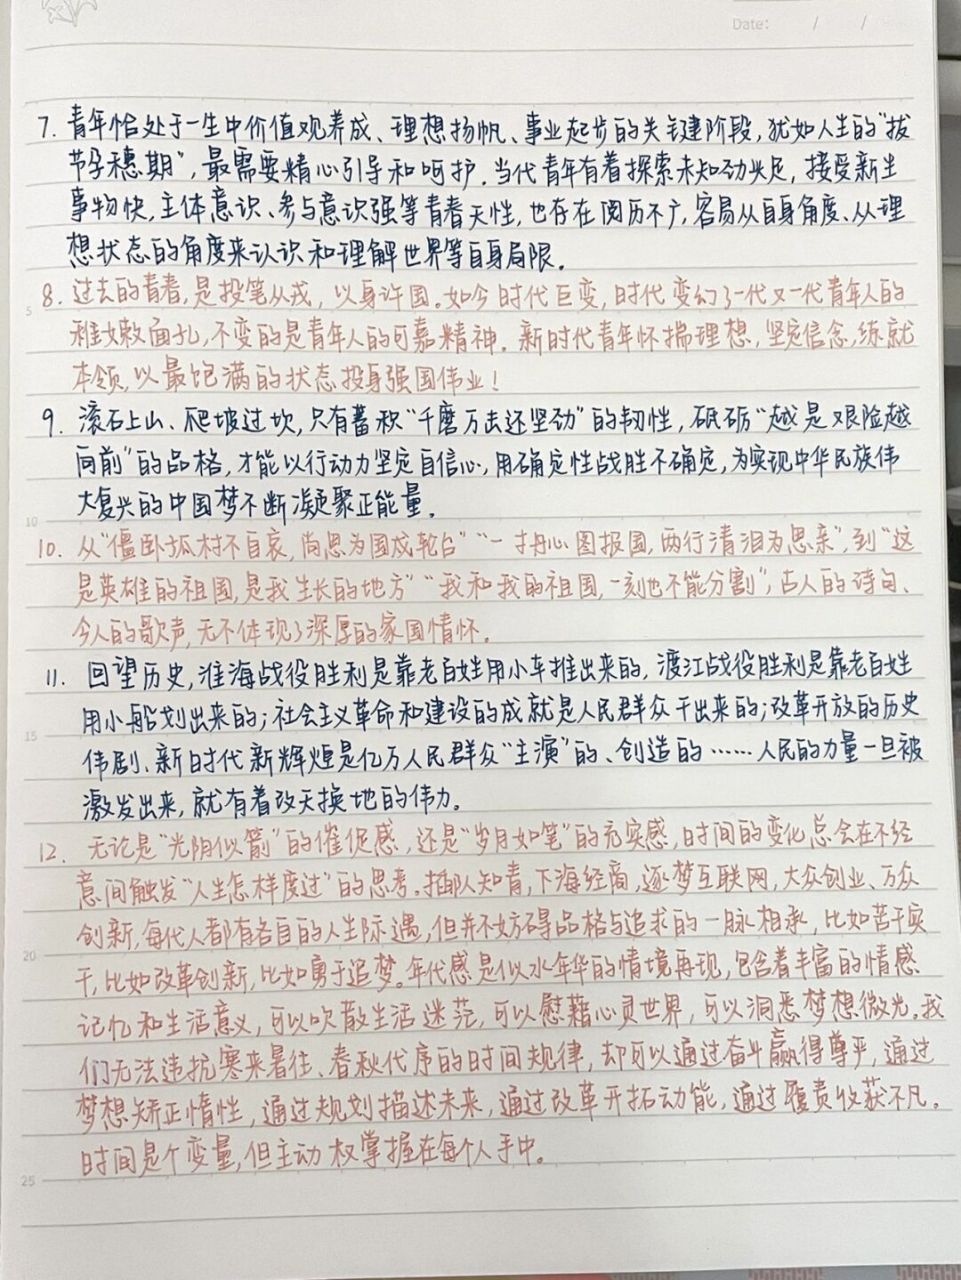 Date: / /
7. 青年恰处于一生中价值观养成、理想扬帆、事业起步的关键阶段,犹如人生的"拔
节孕穗期",最需要精心引导和呵护。当代青年有着探索未知劲兴足,接受新生
事物快,主体意识、参与意识强等青春天性,也存在阅历不广,容易从自身角度、从理
想状态的角度来认识和理解世界等自身局限。
8. 过去的青春,是投笔从戎,以身许国。如今时代巨变,时代变幻了一代又一代青年人的
5
稚嫩面孔,不变的是青年人的可嘉精神。新时代青年怀揣理想,坚定信念,练就
本领,以最饱满的状态投身强国伟业!
9. 滚石上山、爬坡过坎,只有蓄积"千磨万击还坚劲"的韧性,砥砺"越是艰险越
向前"的品格,才能以行动力坚定自信心,用确定性战胜不确定,为实现中华民族伟
大复兴的中国梦不断凝聚正能量。
10
10. 从"僵卧孤村不自哀,尚思为国戍轮台""一寸丹心图报国,两行清泪为思亲",到"这
是英雄的祖国,是我生长的地方""我和我的祖国,一刻也不能分割",古人的诗句、
今人的歌声,无不体现了深厚的家国情怀。
11. 回望历史,淮海战役胜利是靠老百姓用小车推出来的,渡江战役胜利是靠老百姓
用小船划出来的;社会主义革命和建设的成就是人民群众干出来的;改革开放的历史
15
伟剧、新时代新辉煌是亿万人民群众"主演"的、创造的……人民的力量一旦被
激发出来,就有着改天换地的伟力。
12. 无论是"光阴似箭"的催促感,还是"岁月如笔"的充实感,时间的变化总会在不经
意间触发"人生怎样度过"的思考。插队知青,下海经商,逐梦互联网,大众创业、万众
创新,每代人都有各自的人生际遇,但并不妨碍品格与追求的一脉相承,比如苦干实
20
干,比如改革创新,比如勇于追梦。年代感是似水年华的情境再现,包含着丰富的情感、
记忆和生活意义,可以吹散生活迷茫,可以慰藉心灵世界,可以洞悉梦想微光。我
们无法违抗寒来暑往、春秋代序的时间规律,却可以通过奋斗赢得尊严,通过
梦想矫正惰性,通过规划描述未来,通过改革开拓动能,通过履责收获不凡。
时间是个变量,但主动权掌握在每个人手中。
25